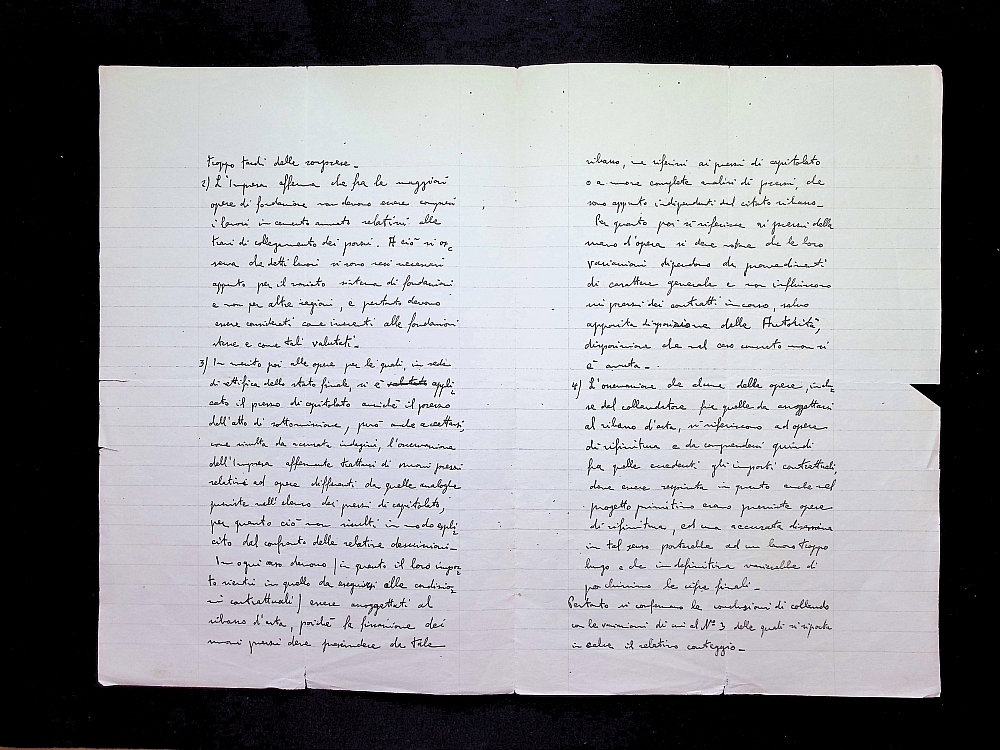 troppo tardi delle sorprese_
2) L'Impresa afferma che fra le maggiori
opere di fondazione non devono essere compresi
i lavori in cemento armato relativi alle
travi di collegamento dei pozzi. A ciò si os=
serva che detti lavori si sono resi necessari
appunto per il sistema di fondazioni
e non per altre ragioni, e pertanto devono
essere considerati come inerenti alle fondazioni
stesse e come tali valutati_
3) In merito poi alle opere per le quali, in sede
di rettifica dello stato finale, si è valutato appli=
cato il prezzo di capitolato anziché il prezzo
dell'atto di sottomissione, può anche accettarsi,
come risulta da accurata indagine, l'osservazione
dell'Impresa affermante trattarsi di nuovi prezzi
relativi ad opere differenti da quelle analoghe
previste nell'elenco dei prezzi di capitolato,
per quanto ciò non risulti in modo espli=
cito dal confronto delle relative descrizioni_
In ogni caso devono (in quanto il loro impor=
to rientri in quello da eseguirsi alle condizio=
ni contrattuali) essere assoggettati al
ribasso d'asta, poiché la fissazione dei
nuovi prezzi deve prescindere da tale
ribasso, e riferirsi ai prezzi di capitolato
o a nuove complete analisi di prezzi, che
sono appunto indipendenti dal citato ribasso_
Per quanto poi si riferisce ai prezzi della
mano d'opera si deve notare che le loro
variazioni dipendono da provvedimenti
di carattere generale e non influiscono
sui prezzi dei contratti in corso, salvo
apposita disposizione delle Autorità,
disposizione che nel caso concreto non si
è avuta_
4) L'osservazione che alcune delle opere, inclu=
se dal collaudatore fra quelle da assoggettarsi
al ribasso d'asta, si riferiscono ad opere
di rifinitura e da comprendersi quindi
fra quelle eccedenti gli importi contrattuali,
deve essere respinta in quanto anche nel
progetto primitivo erano previste opere
di rifinitura, ed una accurata disamina
in tal senso porterebbe ad un lavoro troppo
lungo e che in definitiva varierebbe di
pochissimo le cifre finali_
Pertanto si confermano le conclusioni di collaudo
con le variazioni di cui al N° 3 delle quali si riporta
in calce il relativo conteggio_